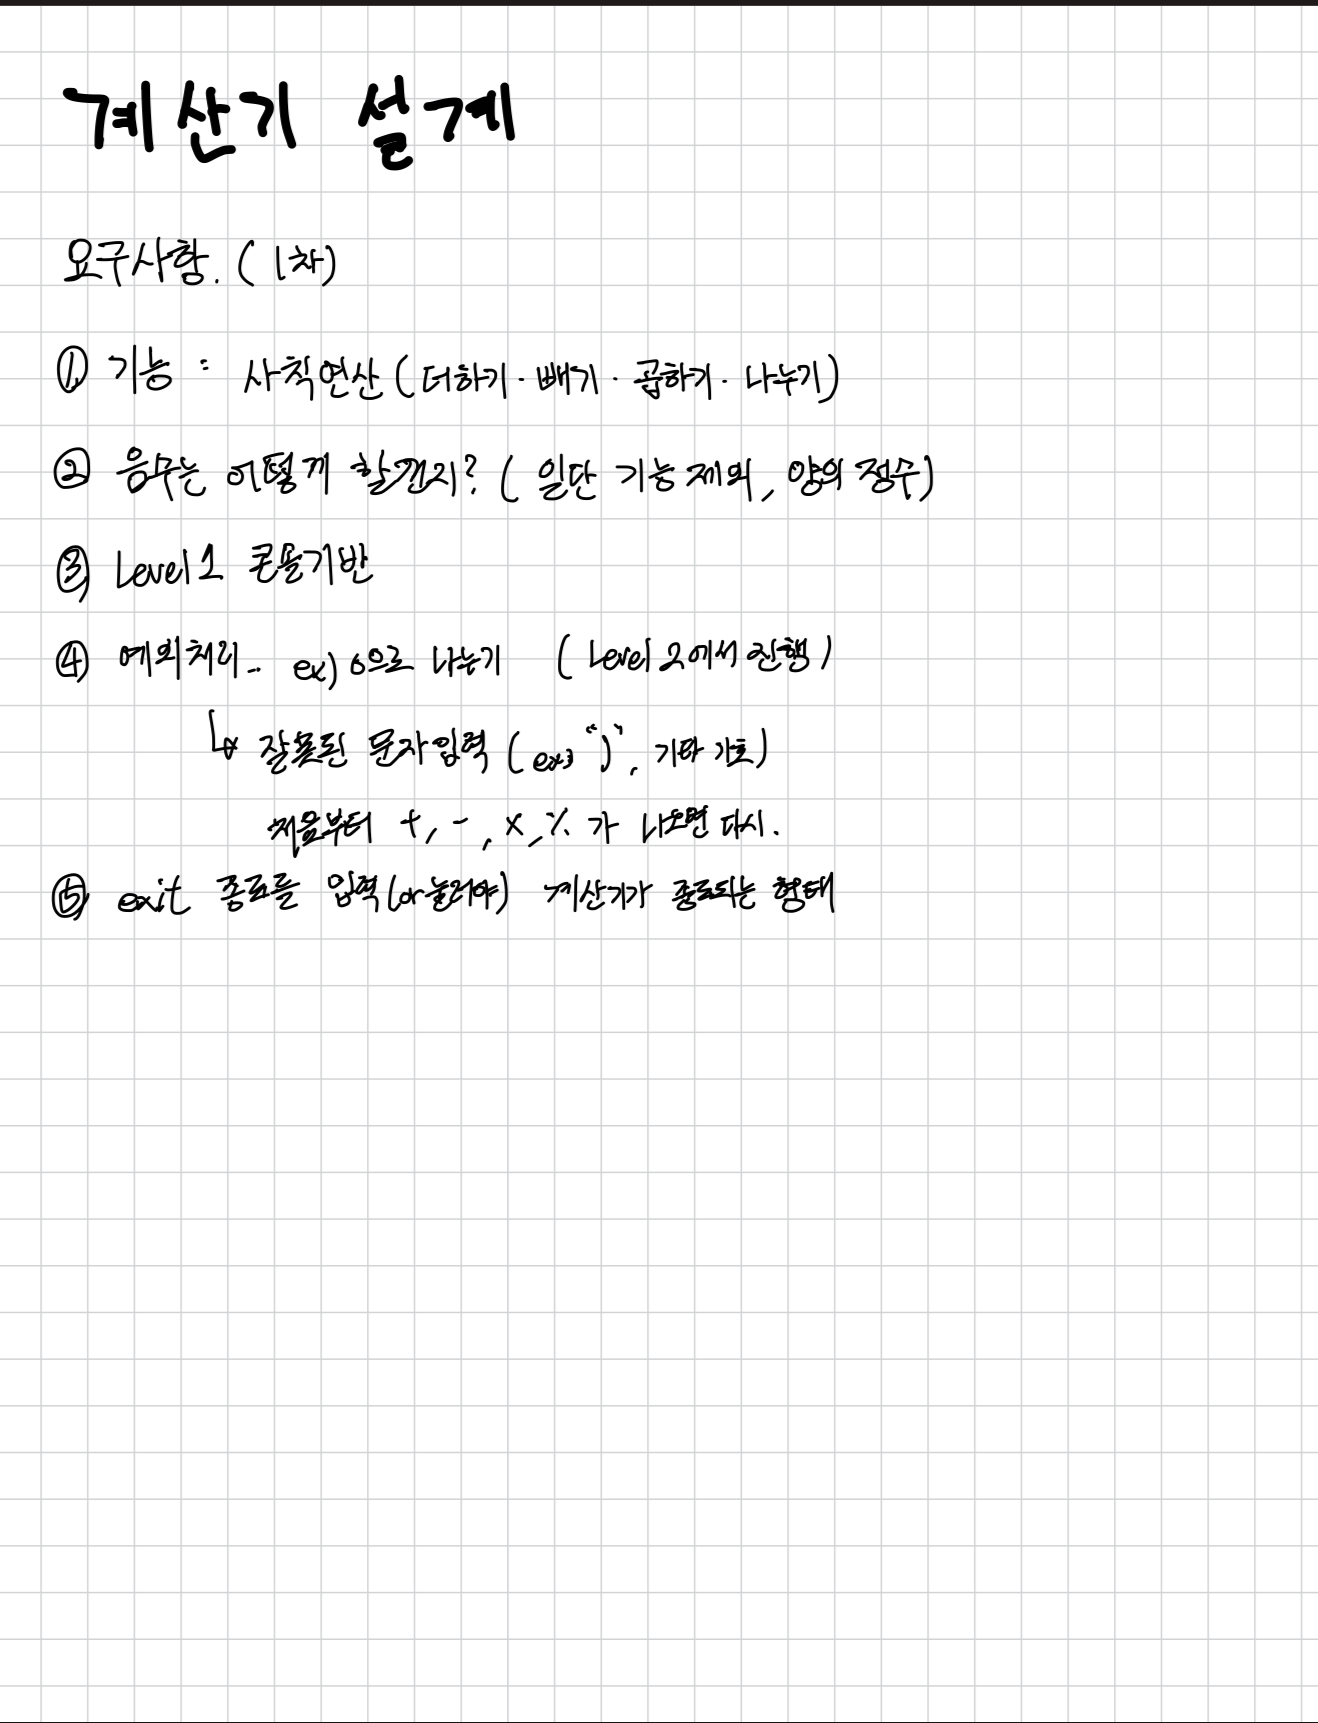 계산기 설계
요구사항. (1차)
① 기능 : 사칙연산 (더하기 · 빼기 · 곱하기 · 나누기)
② 음수는 어떻게 할껀지? ( 일단 기능 제외, 양의 정수)
③ Level 1 콘솔기반
④ 예외처리.. ex) 0으로 나누기 ( Level 2에서 진행 )
↳ 잘못된 문자입력 ( ex) ")", 기타 기호)
처음부터 +, -, x, % 가 나오면 다시.
⑤ exit 종료를 입력(or눌러야) 계산기가 종료되는 형태